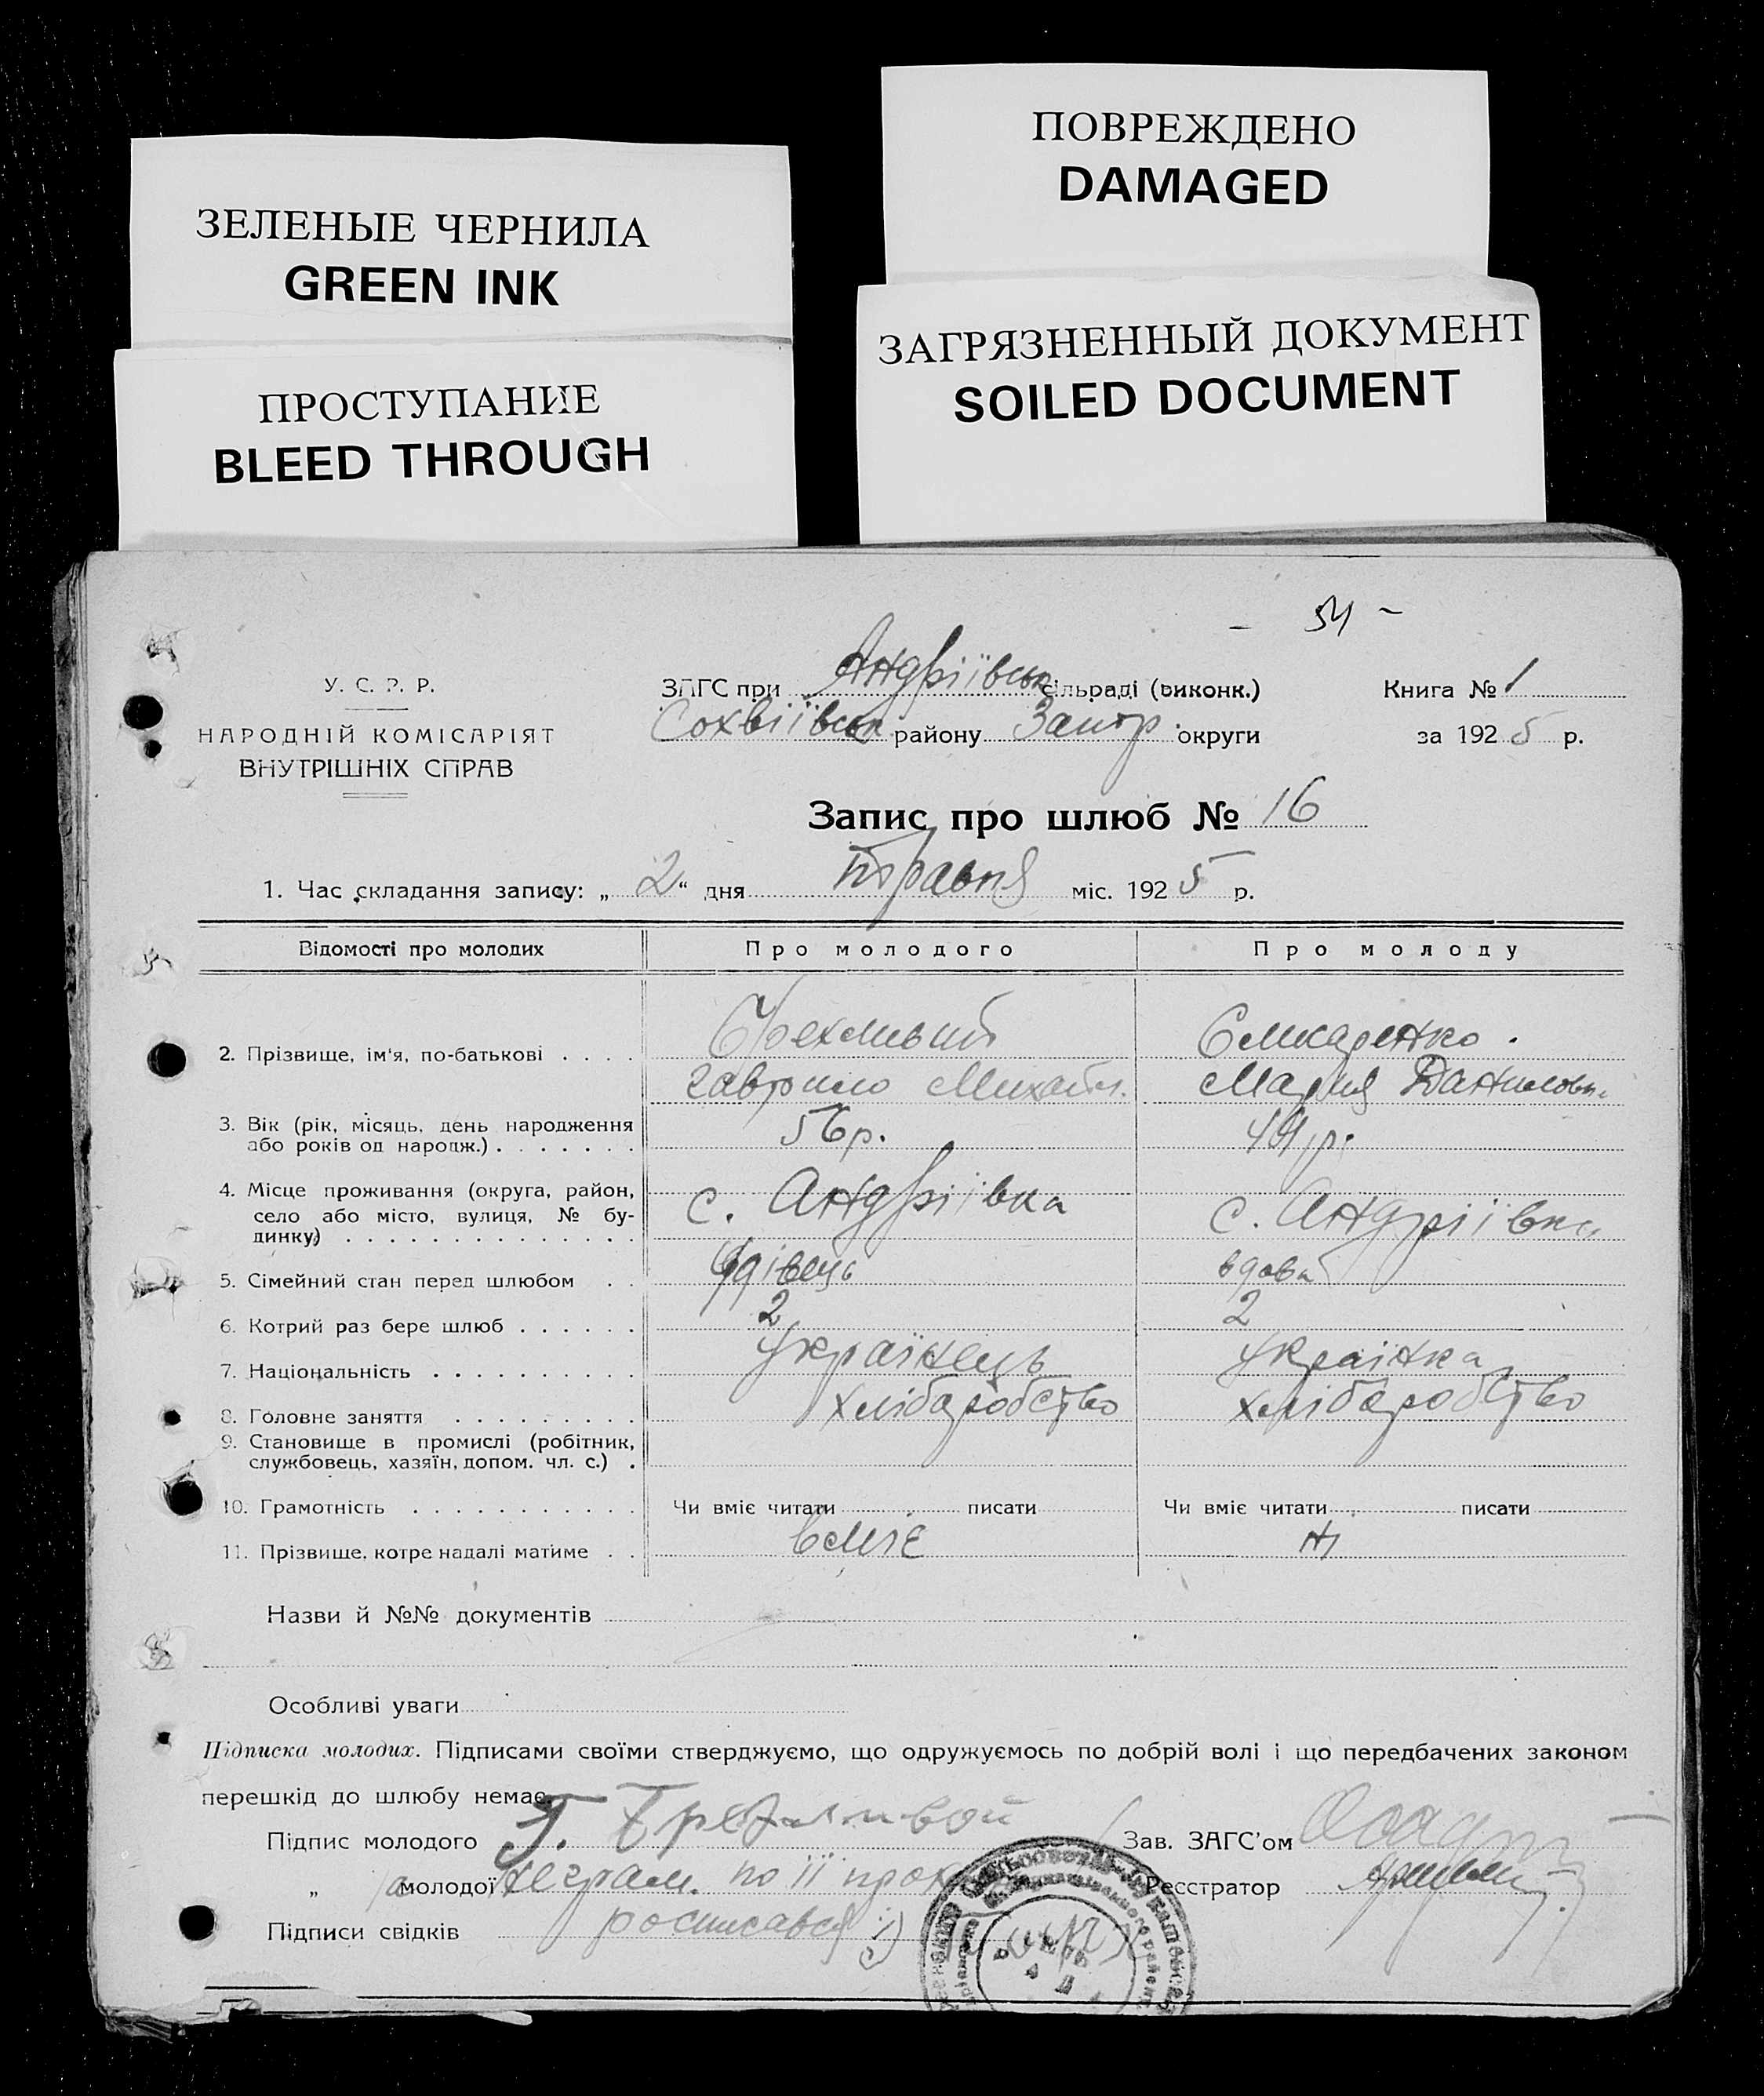 ПОВРЕЖДЕНО
DAMAGED
ЗЕЛЕНЫЕ ЧЕРНИЛА
GREEN INK
ЗАГРЯЗНЕННЫЙ ДОКУМЕНТ
SOILED DOCUMENT
ПРОСТУПАНИЕ
BLEED THROUGH
У. С. Р. Р.
НАРОДНІЙ КОМІСАРІЯТ
ВНУТРІШНІХ СПРАВ
ЗАГС при Андріївськ сільраді (виконк.)
Софіївськ району Запор. округи
Книга № 1
за 1925 р.
Запис про шлюб № 16
1. Час складання запису: „ 2 “ дня травня міс. 1925 р.
Відомості про молодих
Про молодого
Про молоду
2. Прізвище, ім'я, по-батькові . . . .
Гаврило Михайл.
Мария Данилов
3. Вік (рік, місяць, день народження
або років од народж.) . . . . . . .
56 р.
р.
4. Місце проживання (округа, район,
село або місто, вулиця, № бу-
динку) . . . . . . . . . . . . . .
с. Андріївка
с. Андріївка
5. Сімейний стан перед шлюбом . .
Удівець
вдова
6. Котрий раз бере шлюб . . . . . .
2
2
7. Національність . . . . . . . . . .
Українець
Українка
8. Головне заняття . . . . . . . . .
хліборобство
хліборобство
9. Становище в промислі (робітник,
службовець, хазяїн, допом. чл. с.) .
10. Грамотність . . . . . . . . . . .
Чи вміє читати писати
Чи вміє читати писати
11. Прізвище, котре надалі матиме . .
вміє
ні
Назви й №№ документів
Особливі уваги
Підписка молодих. Підписами своїми стверджуємо, що одружуємось по добрій волі і що передбачених законом
перешкід до шлюбу немає.
Підпис молодого Г.
Зав. ЗАГС'ом
„ молодої неграм. по її
Реєстратор
Підписи свідків росписався